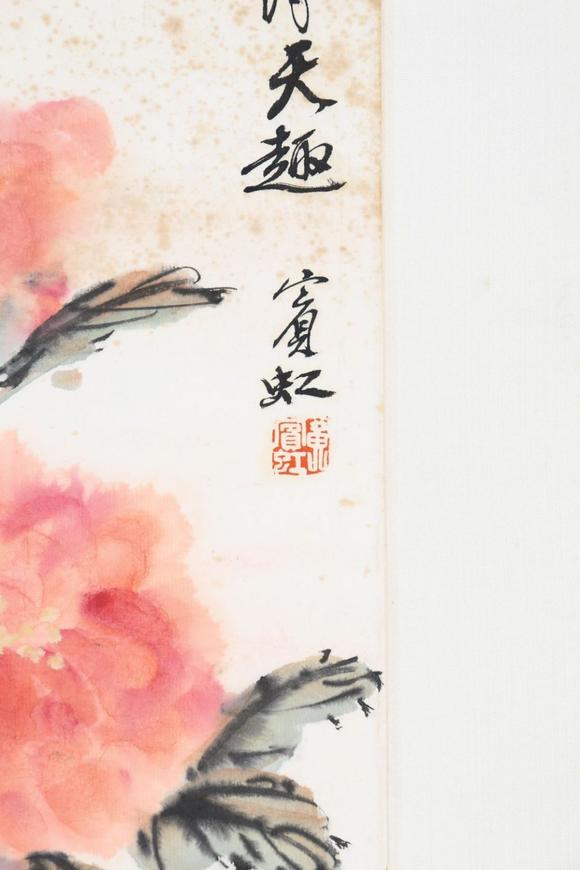 天趣
賓虹
黃賓虹